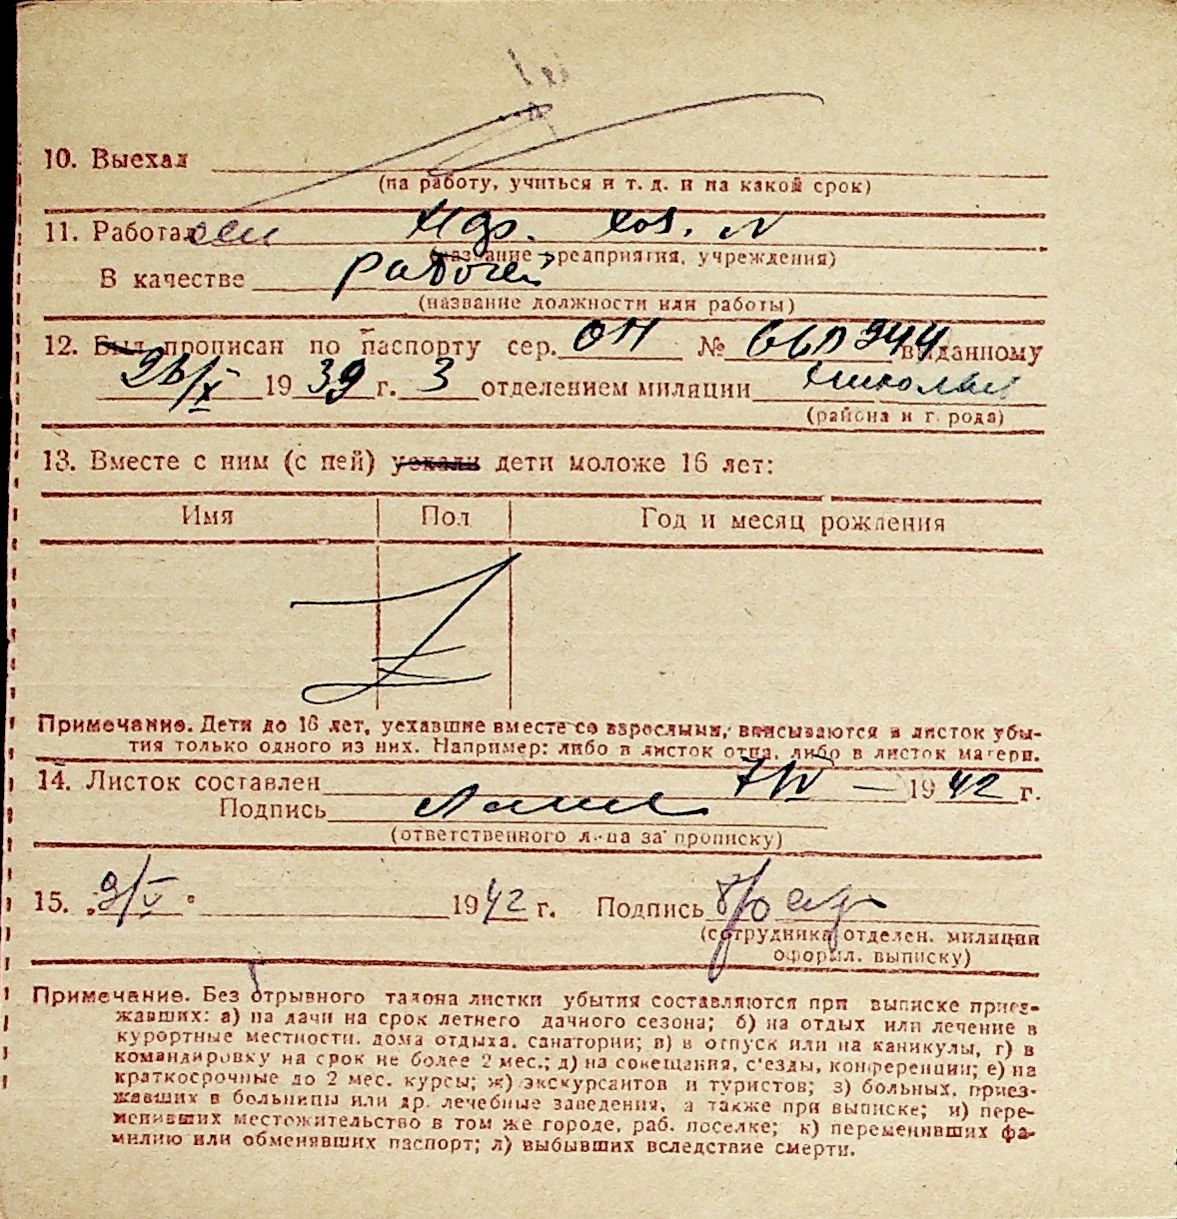 10. Выехал
(на работу, учиться и т. д. и на какой срок)
11. Работал
(название предприятия, учреждения)
В качестве рабочей
(название должности или работы)
12. Был прописан по паспорту сер. ОН № выданному
19 39 г. 3 отделением милиции
(района и города)
13. Вместе с ним (с ней) уехали дети моложе 16 лет:
Имя Пол Год и месяц рождения
Примечание. Дети до 16 лет, уехавшие вместе со взрослыми, вписываются в листок убы-
тия только одного из них. Например: либо в листок отца, либо в листок матери.
14. Листок составлен 7/IV — 19 42 г.
Подпись
(ответственного лица за прописку)
15. „9/V“ 19 42 г. Подпись
(сотрудника отделен. милиции
оформл. выписку)
Примечание. Без отрывного талона листки убытия составляются при выписке приез-
жавших: а) на дачи на срок летнего дачного сезона; б) на отдых или лечение в
курортные местности, дома отдыха, санатории; в) в отпуск или на каникулы, г) в
командировку на срок не более 2 мес.; д) на совещания, с'езды, конференции; е) на
краткосрочные до 2 мес. курсы; ж) экскурсантов и туристов; з) больных, приез-
жавших в больницы или др. лечебные заведения, а также при выписке; и) пере-
менивших местожительство в том же городе, раб. поселке; к) переменивших фа-
милию или обменявших паспорт; л) выбывших вследствие смерти.